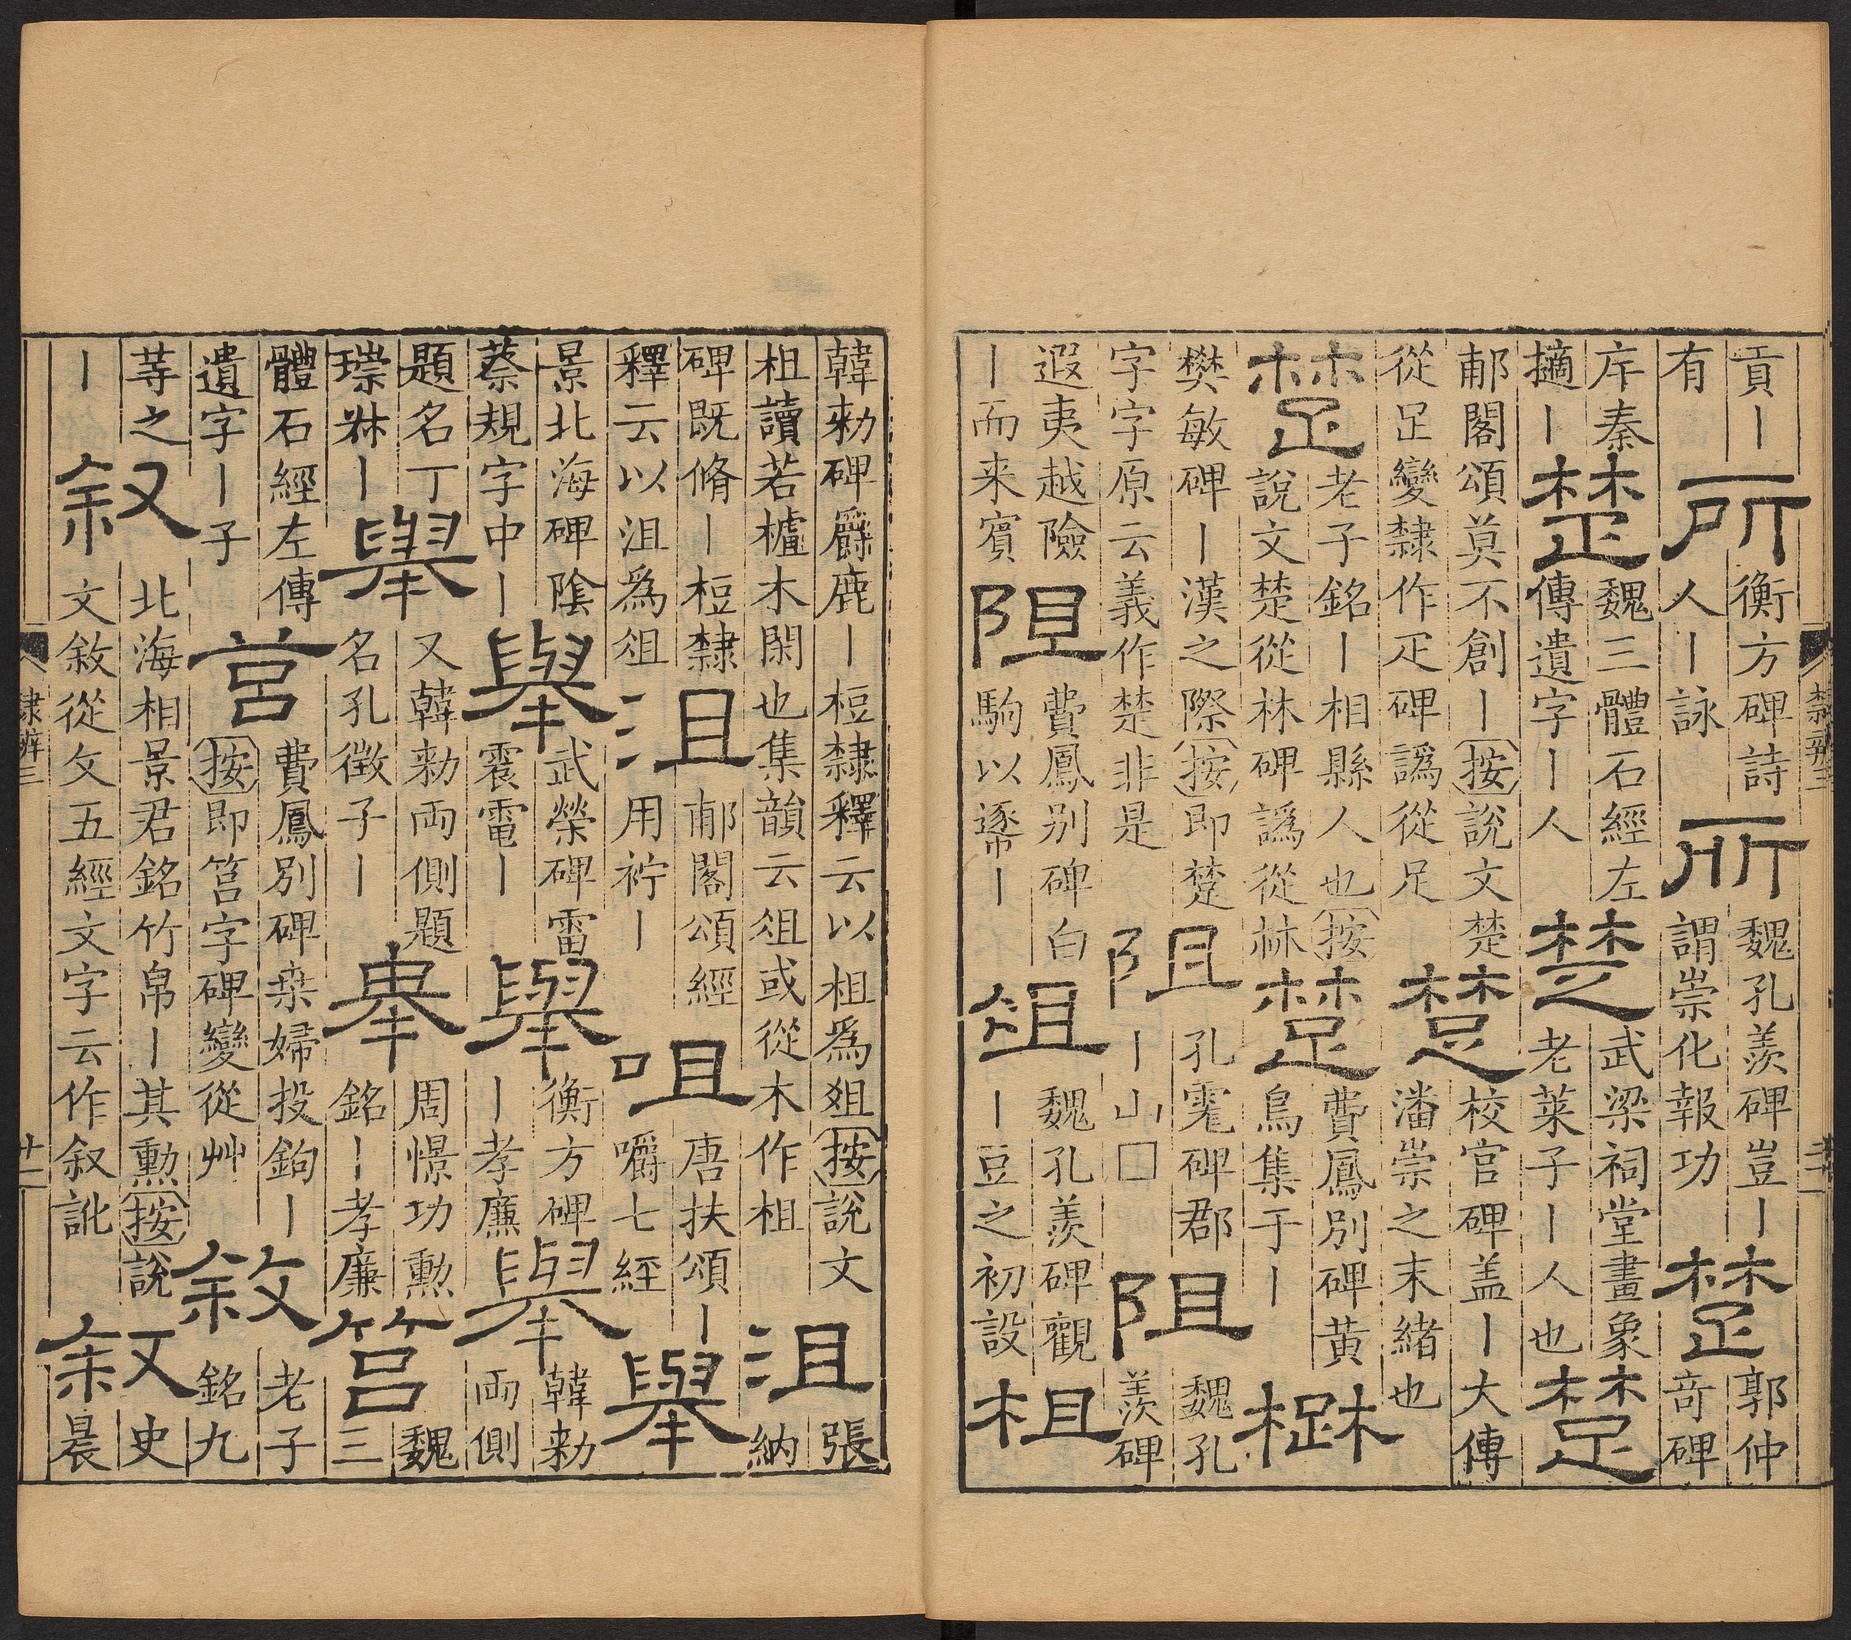 貢丨
有
所
衡方碑詩
人丨詠
所
魏孔羨碑豈丨
謂崇化報功
楚
郭仲
奇碑
序秦
擿丨
楚
魏三體石經左
傳遺字丨人丨人
楚
武梁祠堂畫象
老萊子丨人也
楚
郙閣頌莫不創丨按說文楚
從疋變隸作疋碑譌從足
楚
校官碑盖丨大傅
潘崇之末緒也
楚
老子銘丨相縣人也按
說文楚從林碑譌從𣏟
楚
費鳳別碑黄
鳥集于丨
檚
樊敏碑丨漢之際按即楚
字字原云義作楚非是
阻
孔碑郡
丨山□
阻
魏孔
羨碑
遐夷越險
丨而来賓
阻
費鳳别碑白
駒以逐丨
俎
魏孔羨碑觀
丨豆之初設
柤
韓勑碑爵鹿丨梪隸釋云以柤爲俎按說文
柤讀若樝木閑也集韻云俎或從木作柤
沮
張
納
碑既脩丨梪隸
釋云以沮爲俎
沮
郙閣頌經
用衿丨
咀
唐扶頌丨
嚼七經
舉
景北海碑陰
蔡規字中丨
舉
武榮碑雷
震電丨
舉
衡方碑
丨孝廉
舉
韓勑
兩側
題名丁
琮丨
舉
又韓勑両側題
名孔徵子丨
舉
周憬功勲
銘丨孝廉
筥
魏
三
體石經左傳
遺字丨子
莒
費鳳別碑桒婦投鉤丨
按即筥字碑變從艸
敘
老子
銘九
䒭之
丨
叙
北海相景君銘竹帛丨其勳按說
文敘從攵五經文字云作叙訛
叙
史
晨
隸辨三
十二